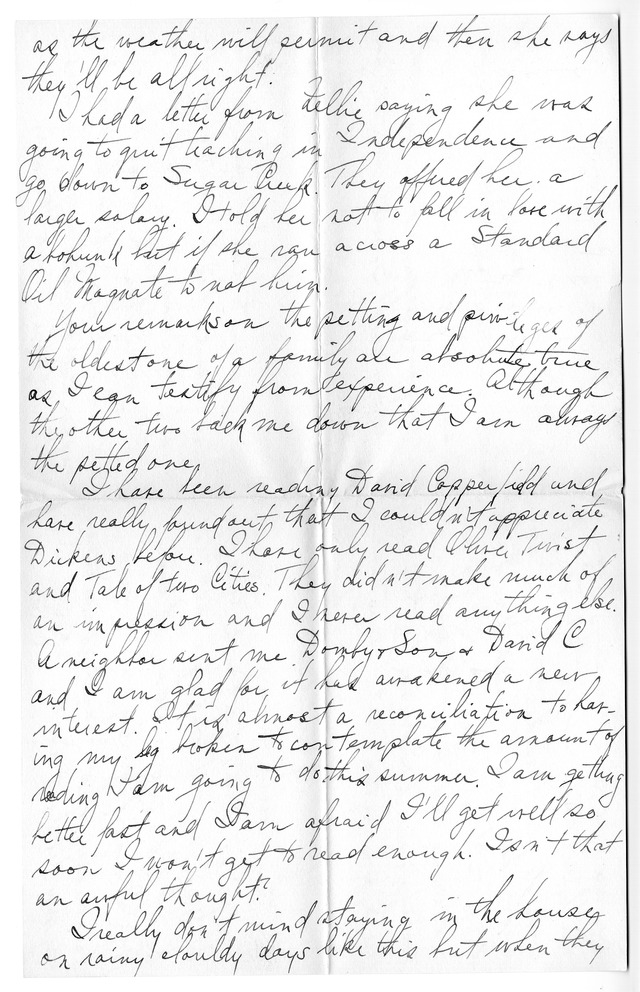 as the weather will permit and then she says
they'll be all right.
I had a letter from Nellie saying she was
going to quit teaching in Independence and
go down to Sugar Creek. They offered her a
larger salary. I told her not to fall in love with
a bohunk but if she ran across a Standard
Oil Magnate to nab him.
Your remarks on the petting and privileges of
the oldest one of a family are absolutely true
as I can testify from experience. Although
the other two back me down that I am always
the petted one.
I have been reading David Copperfield and
have really found out that I couldn't appreciate
Dickens before. I have only read Oliver Twist
and Tale of two Cities. They didn't make much of
an impression and I never read anything else.
A neighbor sent me Domby & Son & David C
and I am glad for it has awakened a new
interest. It is almost a reconciliation to hav-
ing my leg broken to contemplate the amount of
reading I am going to do this summer. I am getting
better fast and I am afraid I'll get well so
soon I won't get to read enough. Isn't that
an awful thought?
I really don't mind staying in the house
on rainy clouldy days like this but when they